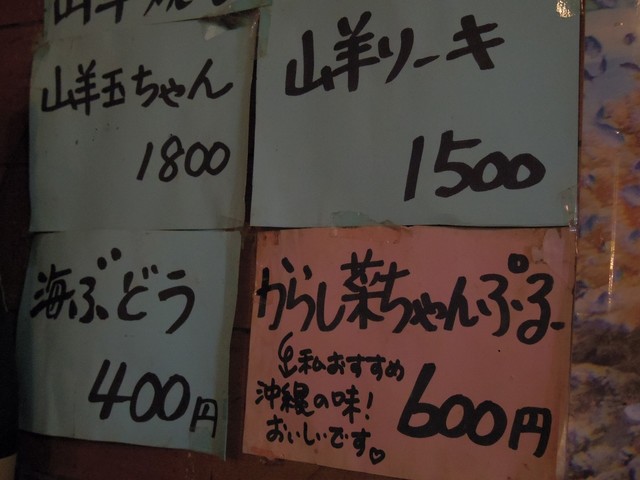 山羊玉ちゃん
1800
山羊リーキ
1500
海ぶどう
400円
からし菜ちゃんぷるー
私おすすめ
沖縄の味!
おいしいです。♡
600円